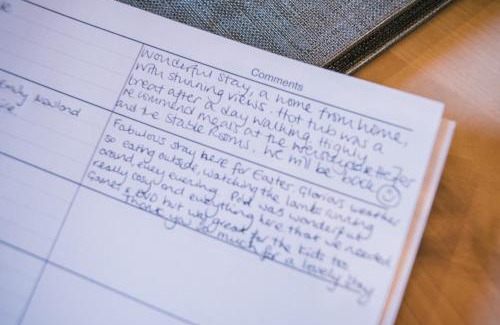 Comments
Wonderful stay, a home from home,
with stunning views. Hot tub was a
treat after a day walking. Highly
recommend meals at the
and the Stable Rooms. We will be back
Fabulous stay here for Easter. Glorious weather
so eating outside, watching the lambs running
around every evening. Pod was wonderful
really cosy and everything here that we needed
Games & DVD but was great for the kids too.
Thank you so much for a lovely stay